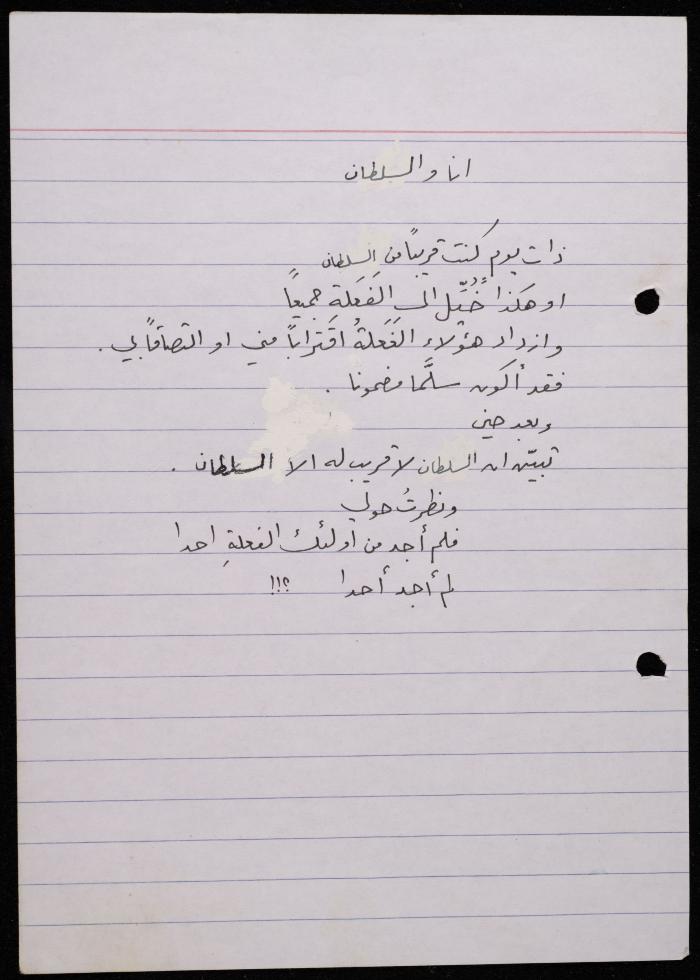 انا والسلطان
ذات يوم كنت قريباً من السلطان
او هكذا خُيِّل الى الفَعَلةِ جميعاً
وازداد هؤلاء الفَعَلةُ اقتراباً مني او التصاقاً بي .
فقد أكون سلَّما مضمونا .
وبعد حين
تبيّن ان السلطان لا قريب له الا السلطان .
ونظرتُ حولي
فلم أجد من أولئك الفعلةِ احدا
لم أجد أحدا ؟!!